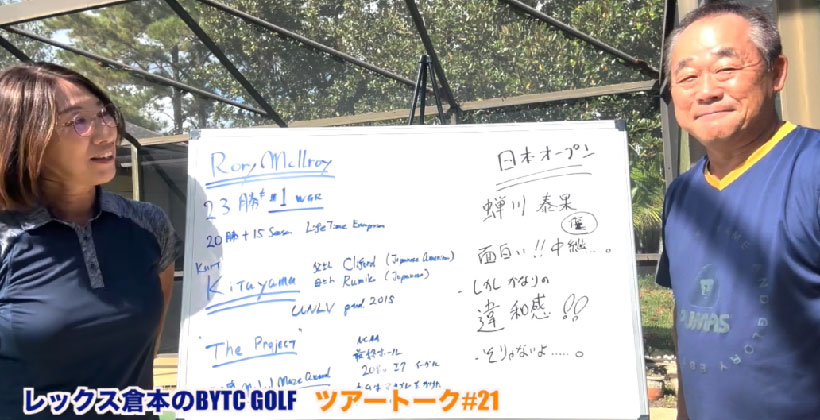 Rory McIlroy
23勝 #1 WGR
20勝+15 Season Life Time Exemption
Kurt
Kitayama
父さん Clifford (Japanese American)
母さん Rumiko (Japanese)
UNLV 2015
"The Project"
最終ホール
日本オープン
蝉川 泰果
面白い!!中継...。
・しかし かなりの
違和感!!
・そりゃないよ.....。
FAME AND GLORY
PUMAS
レックス倉本のBYTC GOLF ツアートーク#21